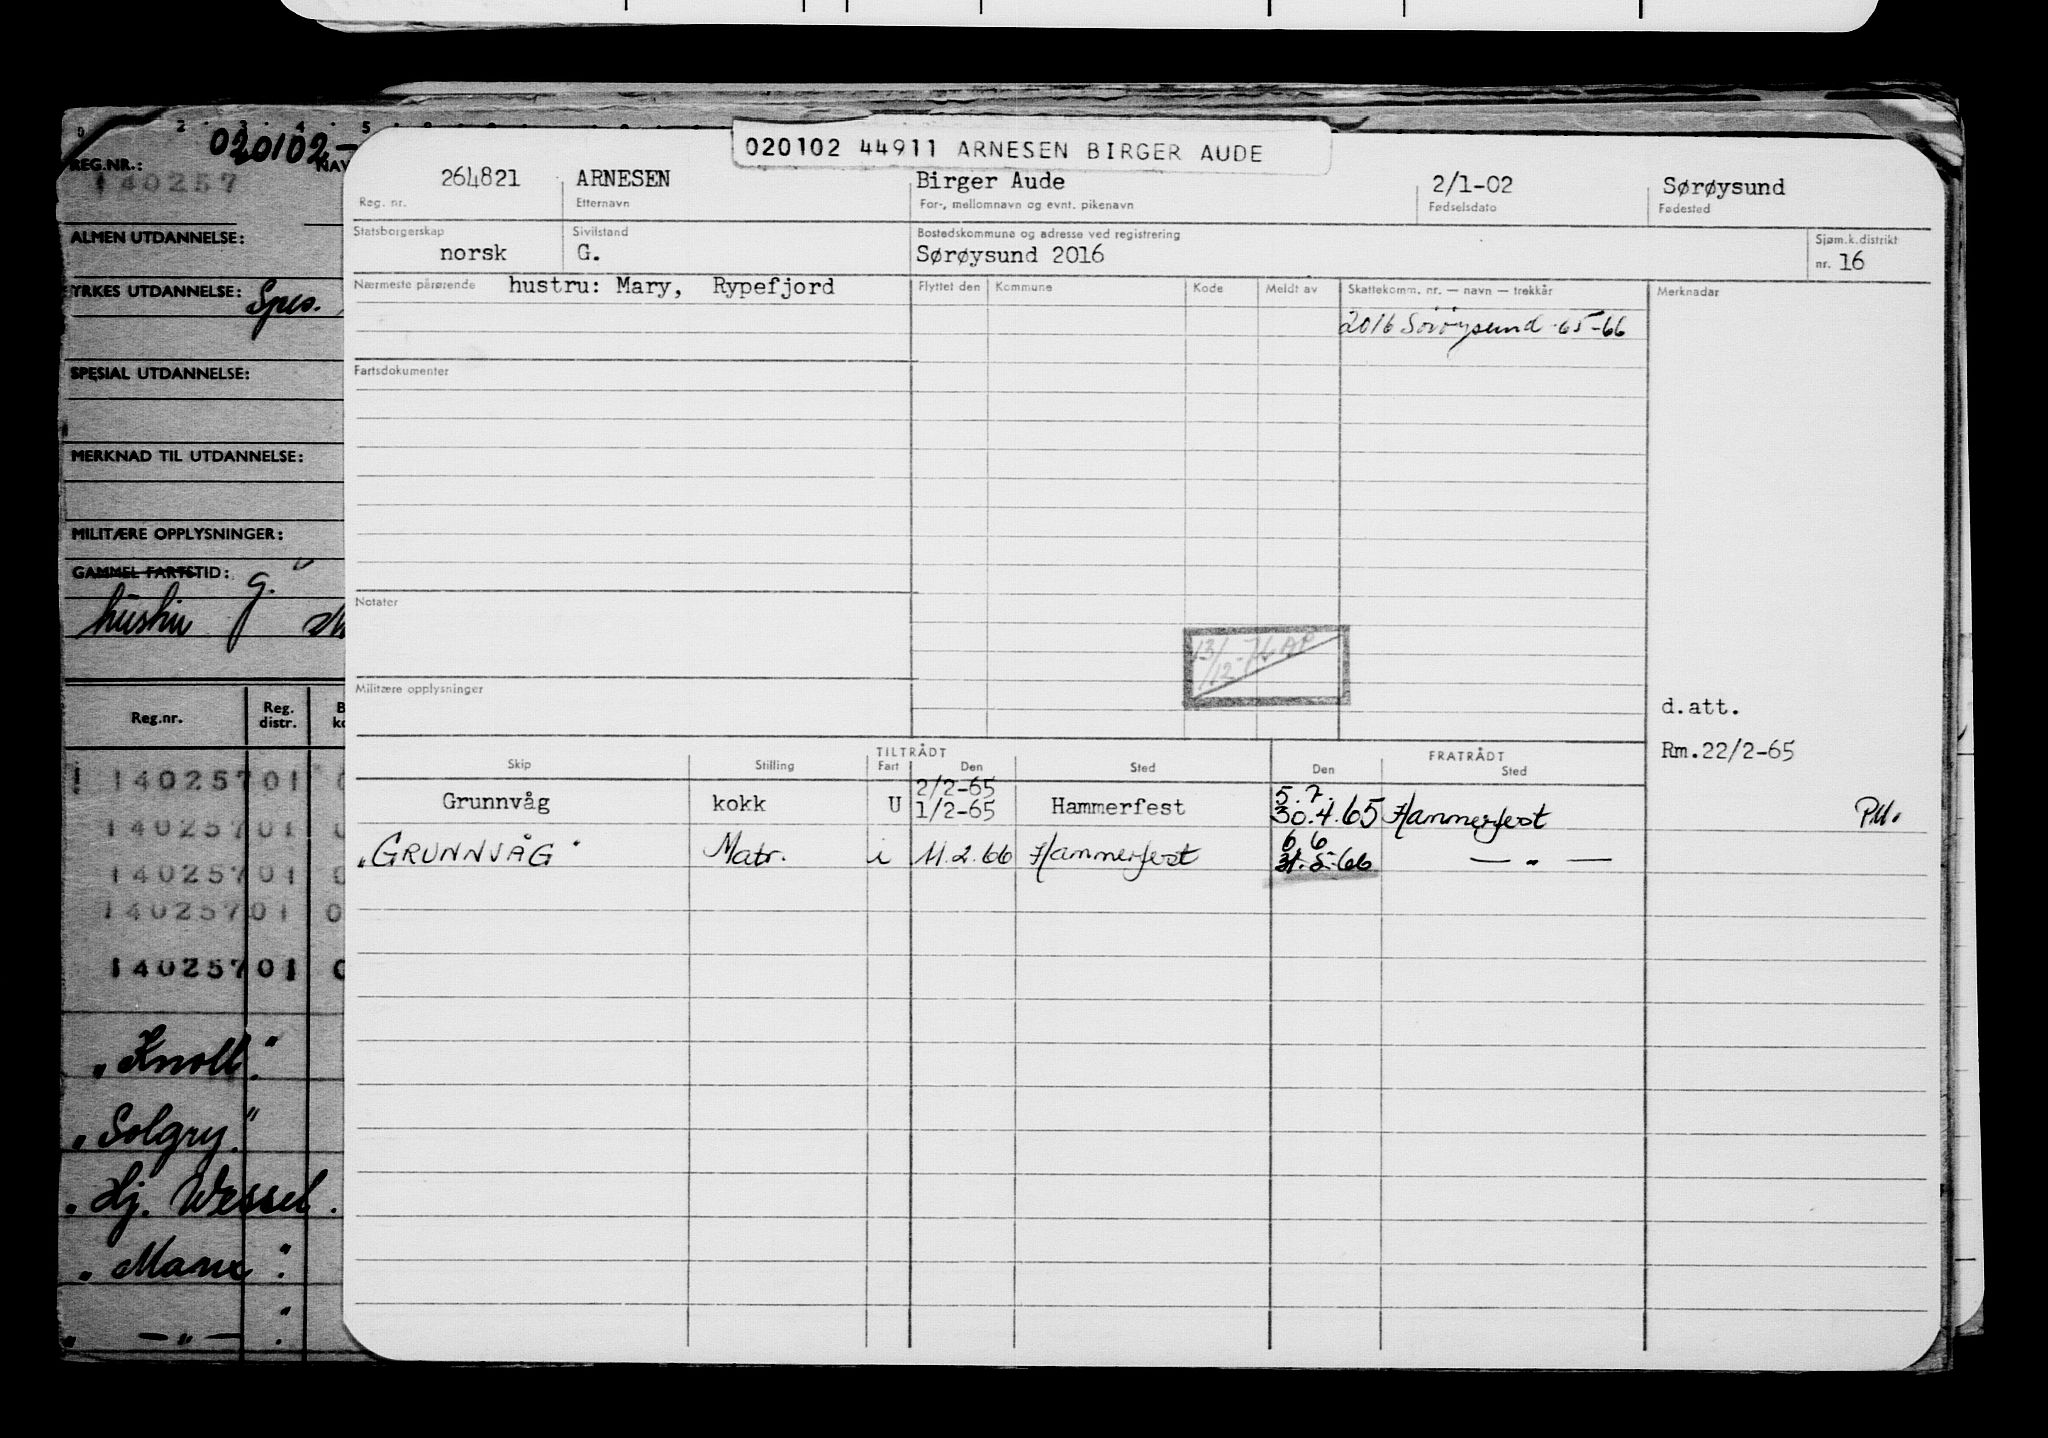 020102-
REG.NR.: NAV
140257
ALMEN UTDANNELSE:
YRKES UTDANNELSE: Spes.
SPESIAL UTDANNELSE:
MERKNAD TIL UTDANNELSE:
MILITÆRE OPPLYSNINGER:
GAMMEL FARTSTID: G.
hustru
Reg.nr. Reg. distr.
14025701 0
14025701 0
14025701 0
14025701 0
14025701 0
"Knoll".
"Solgry."
"Hj. Wessel.
"Manx".
" — " —
020102 44911 ARNESEN BIRGER AUDE
264821 ARNESEN Birger Aude 2/1-02 Sørøysund
Reg. nr. Etternavn For-, mellomnavn og evnt. pikenavn Fødselsdato Fødested
Statsborgerskap Sivilstand Bostedskommune og adresse ved registrering Sjøm.k.distrikt
norsk G. Sørøysund 2016 nr. 16
Nærmeste pårørende hustru: Mary, Rypefjord Flyttet den Kommune Kode Meldt av Skattekomm. nr. — navn — trekkår Merknadar
2016 Sörøysund 65-66
Fartsdokumenter
Notater
13/12-76 AP
Militære opplysninger
d.att.
Rm.22/2-65
TILTRÅDT FRATRÅDT
Skip Stilling Fart Den Sted Den Sted
2/2-65 5.7.
Grunnvåg kokk U 1/2-65 Hammerfest 30.4.65 Hammerfest PM.
6 6
"GRUNNVÅG" Matr. i 11.2.66 Hammerfest 31.5.66 — " —